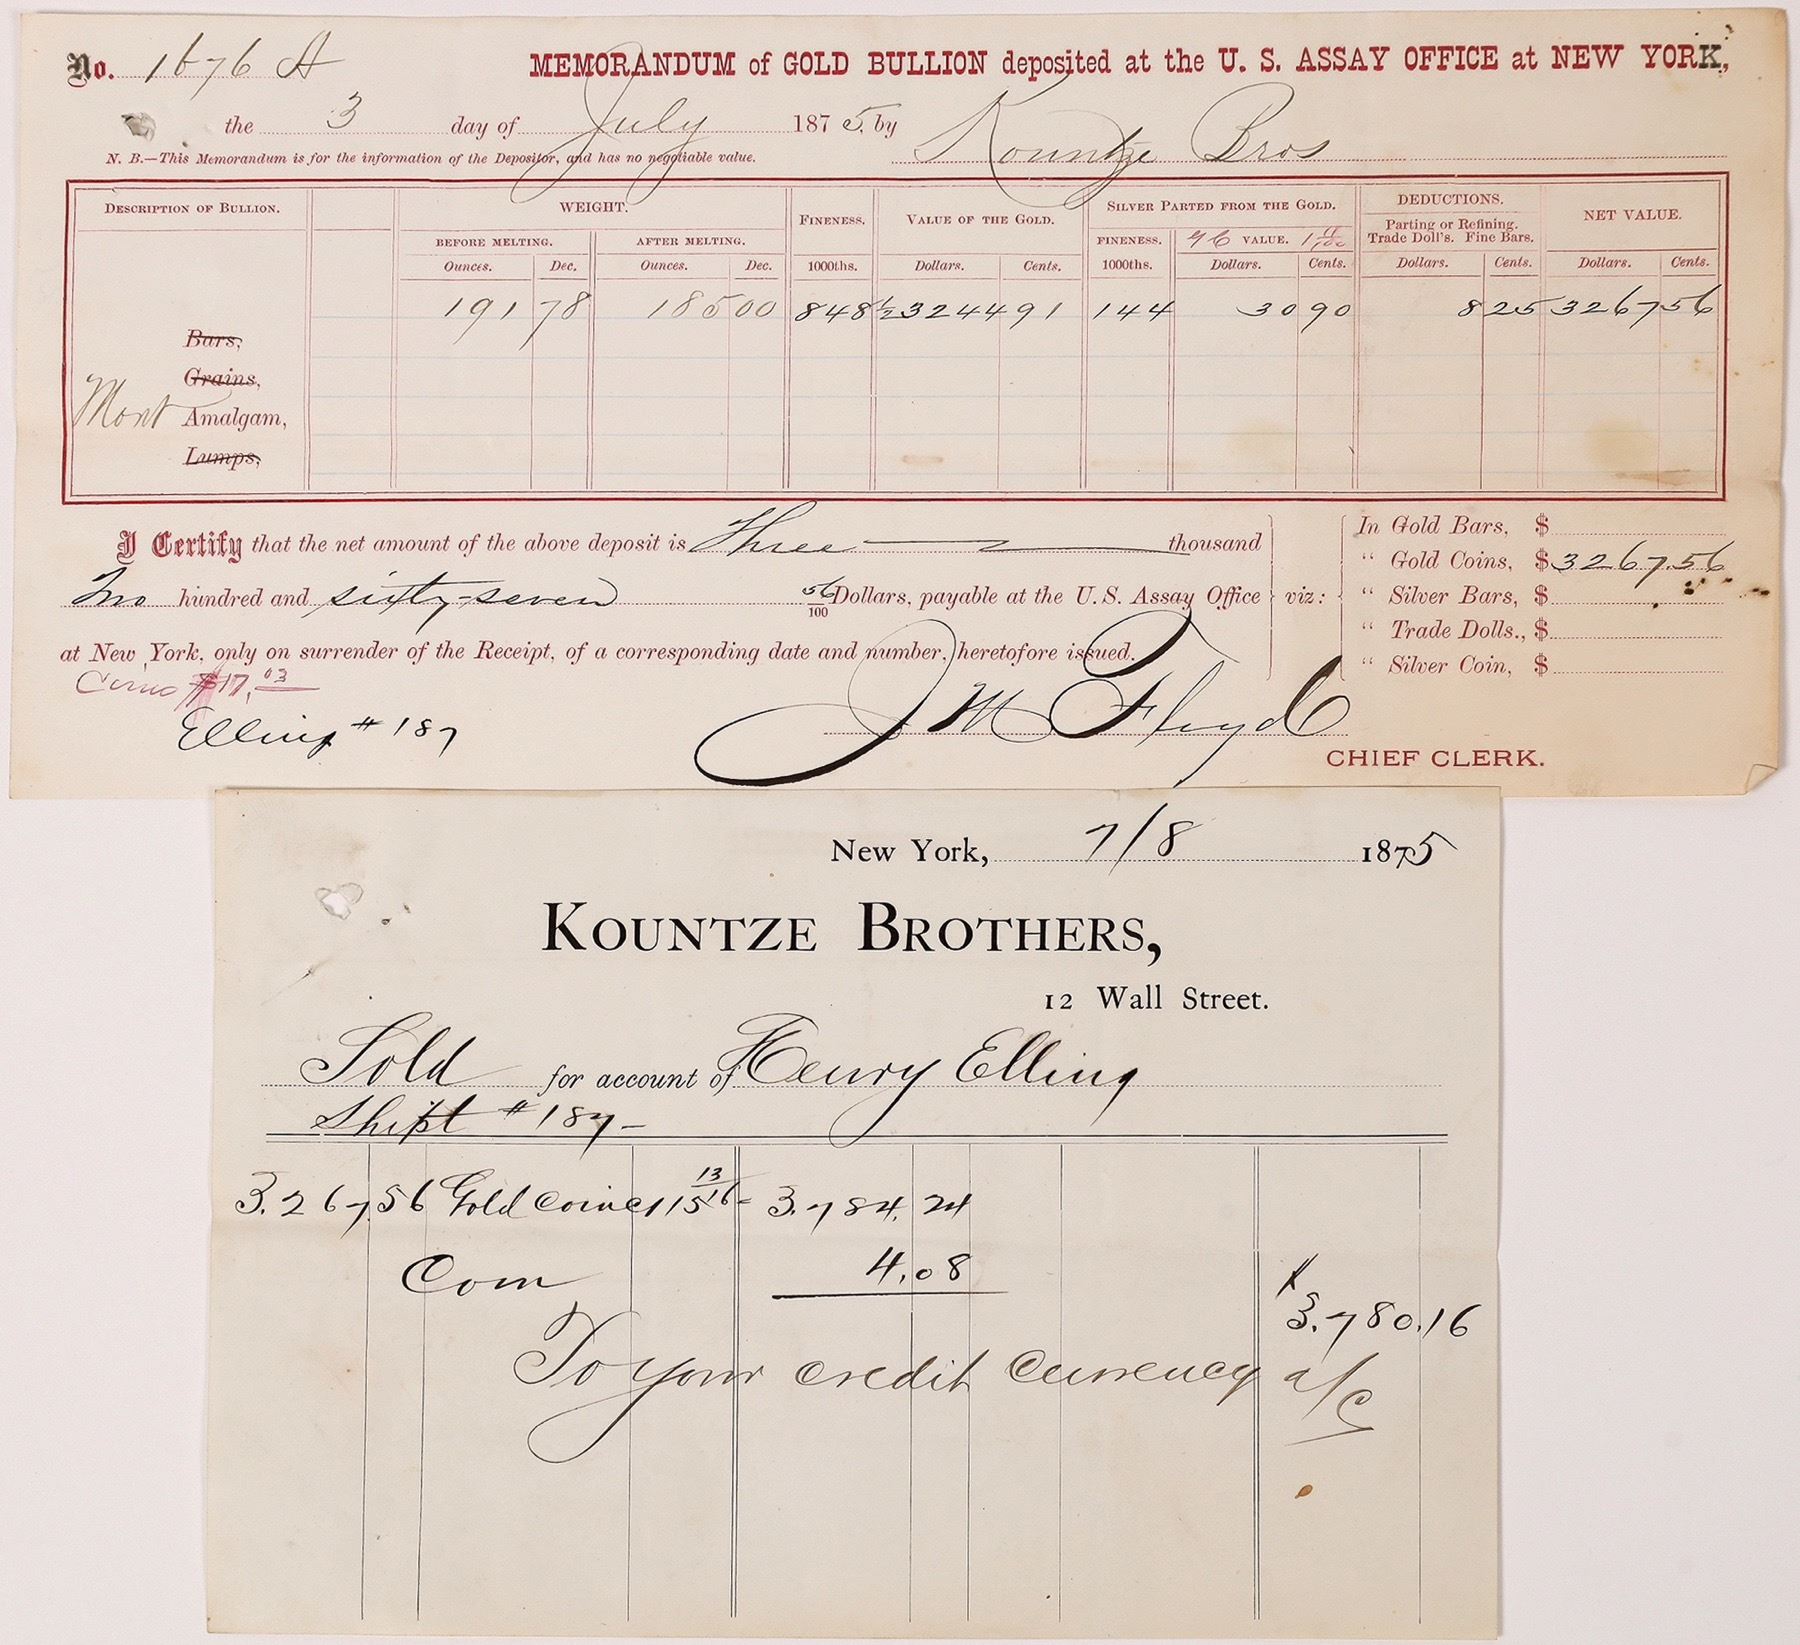 No. 1676 A MEMORANDUM of GOLD BULLION deposited at the U. S. ASSAY OFFICE at NEW YORK,
the 3 day of July 1875, by Kountze Bros
N. B.—This Memorandum is for the information of the Depositor, and has no negotiable value.
DESCRIPTION OF BULLION. WEIGHT. FINENESS. VALUE OF THE GOLD. SILVER PARTED FROM THE GOLD. DEDUCTIONS. NET VALUE.
BEFORE MELTING. AFTER MELTING. FINENESS. VALUE. Parting or Refining. Trade Doll's. Fine Bars.
Ounces. Dec. Ounces. Dec. 1000ths. Dollars. Cents. 1000ths. Dollars. Cents. Dollars. Cents. Dollars. Cents.
191 78 185 00 848½ 3244 91 144 30 90 8 25 3267 56
Bars,
Grains,
Mont Amalgam,
Lumps,
I Certify that the net amount of the above deposit is Three thousand
Two hundred and sixty-seven 56/100 Dollars, payable at the U.S. Assay Office
at New York, only on surrender of the Receipt, of a corresponding date and number, heretofore issued.
viz:
In Gold Bars, $
" Gold Coins, $3267.56
" Silver Bars, $
" Trade Dolls., $
" Silver Coin, $
$17.03
Elling # 187
J M Floyd
CHIEF CLERK.
New York, 7/8 1875
KOUNTZE BROTHERS,
12 Wall Street.
Sold for account of Henry Elling
Shipt # 187-
3.267.56 Gold Coin @ 115 13/16 - 3.784.24
Com 4.08
3.780.16
To your credit currency a/c